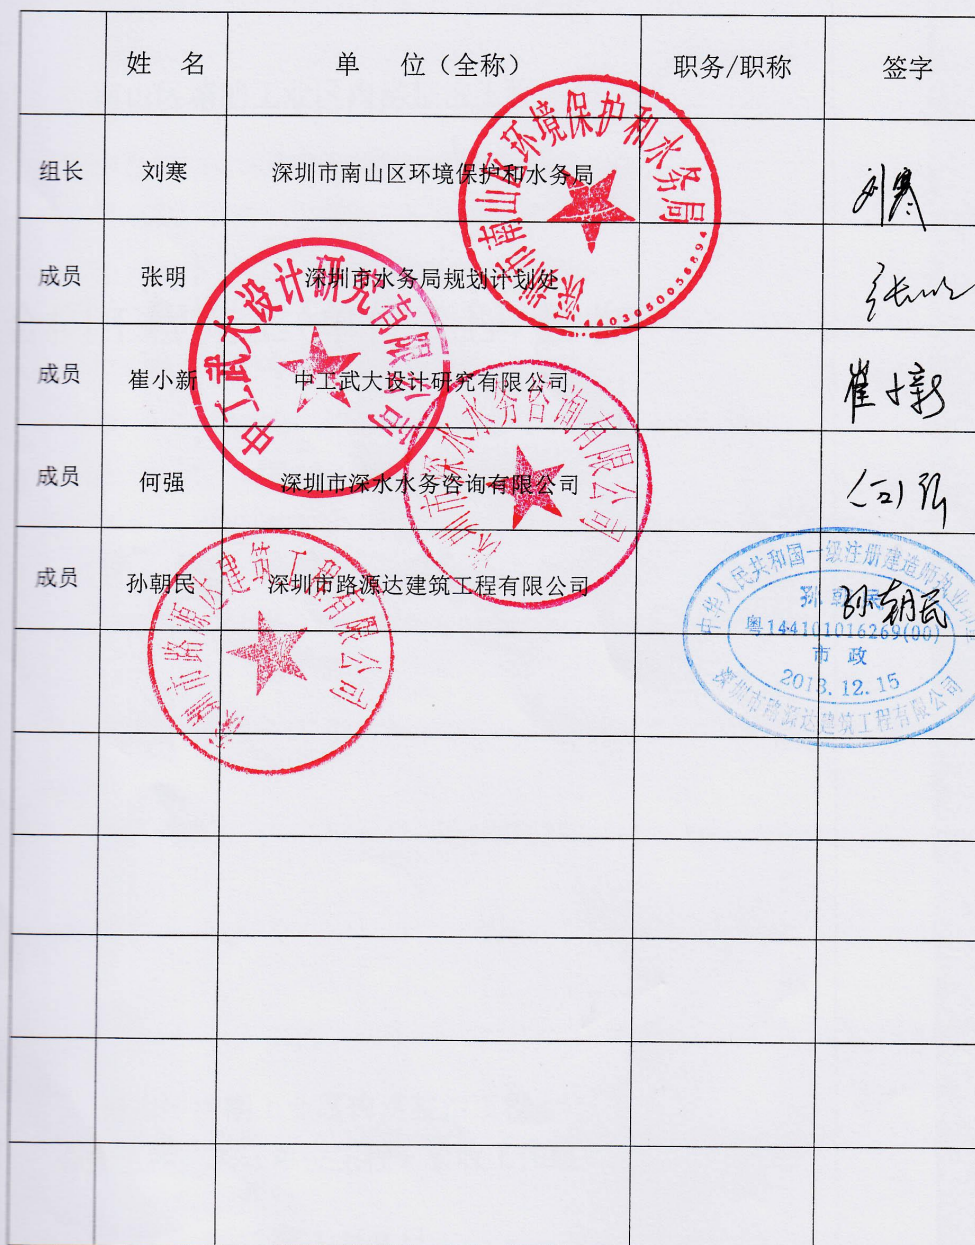 姓 名 单 位（全称） 职务/职称 签字
组长 刘寒 深圳市南山区环境保护和水务局 刘寒
成员 张明 深圳市水务局规划计划处 张明
成员 崔小新 中工武大设计研究有限公司 崔小新
成员 何强 深圳市深水水务咨询有限公司 何强
成员 孙朝民 深圳市路源达建筑工程有限公司 孙朝民
深圳市南山区环境保护和水务局
中工武大设计研究有限公司
深圳市深水水务咨询有限公司
深圳市路源达建筑工程有限公司
中华人民共和国一级注册建造师执业印章
孙朝民
粤144101016269(00)
市政
2013.12.15
深圳市路源达建筑工程有限公司